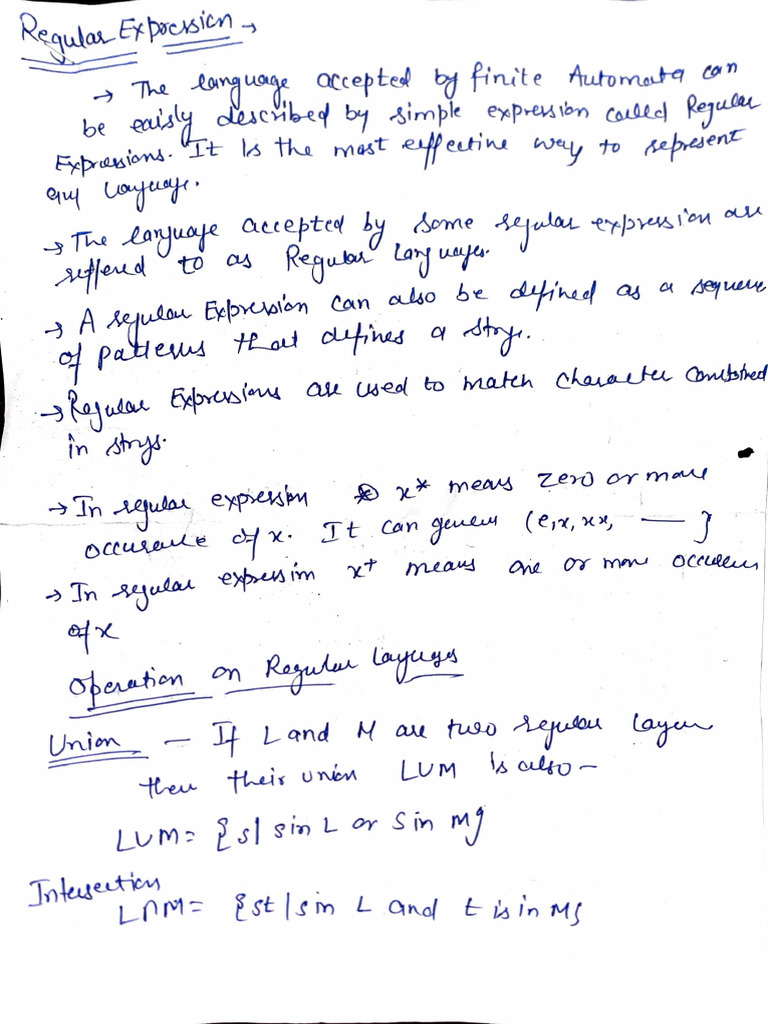 Regular Expression →
→ The language accepted by finite Automata can
be eaisly described by simple expression called Regular
Expressions. It Is the most effective way to represent
any language.
→ The language accepted by some regular expression are
reffered to as Regular Languages.
→ A regular Expression can also be defined as a sequence
of patterns that defines a string.
→ Regular Expressions are used to match character combined
in strings.
→ In regular expression x* means zero or more
occurance of x. It can generate {e, x, xx, — }
→ In regular expression x+ means one or more occurence
of x
Operation on Regular Languages
Union — If L and M are two regular language
then their union LUM is also —
LUM = {s| s in L or S in M}
Intersection
L∩M = {st | s in L and t is in M}